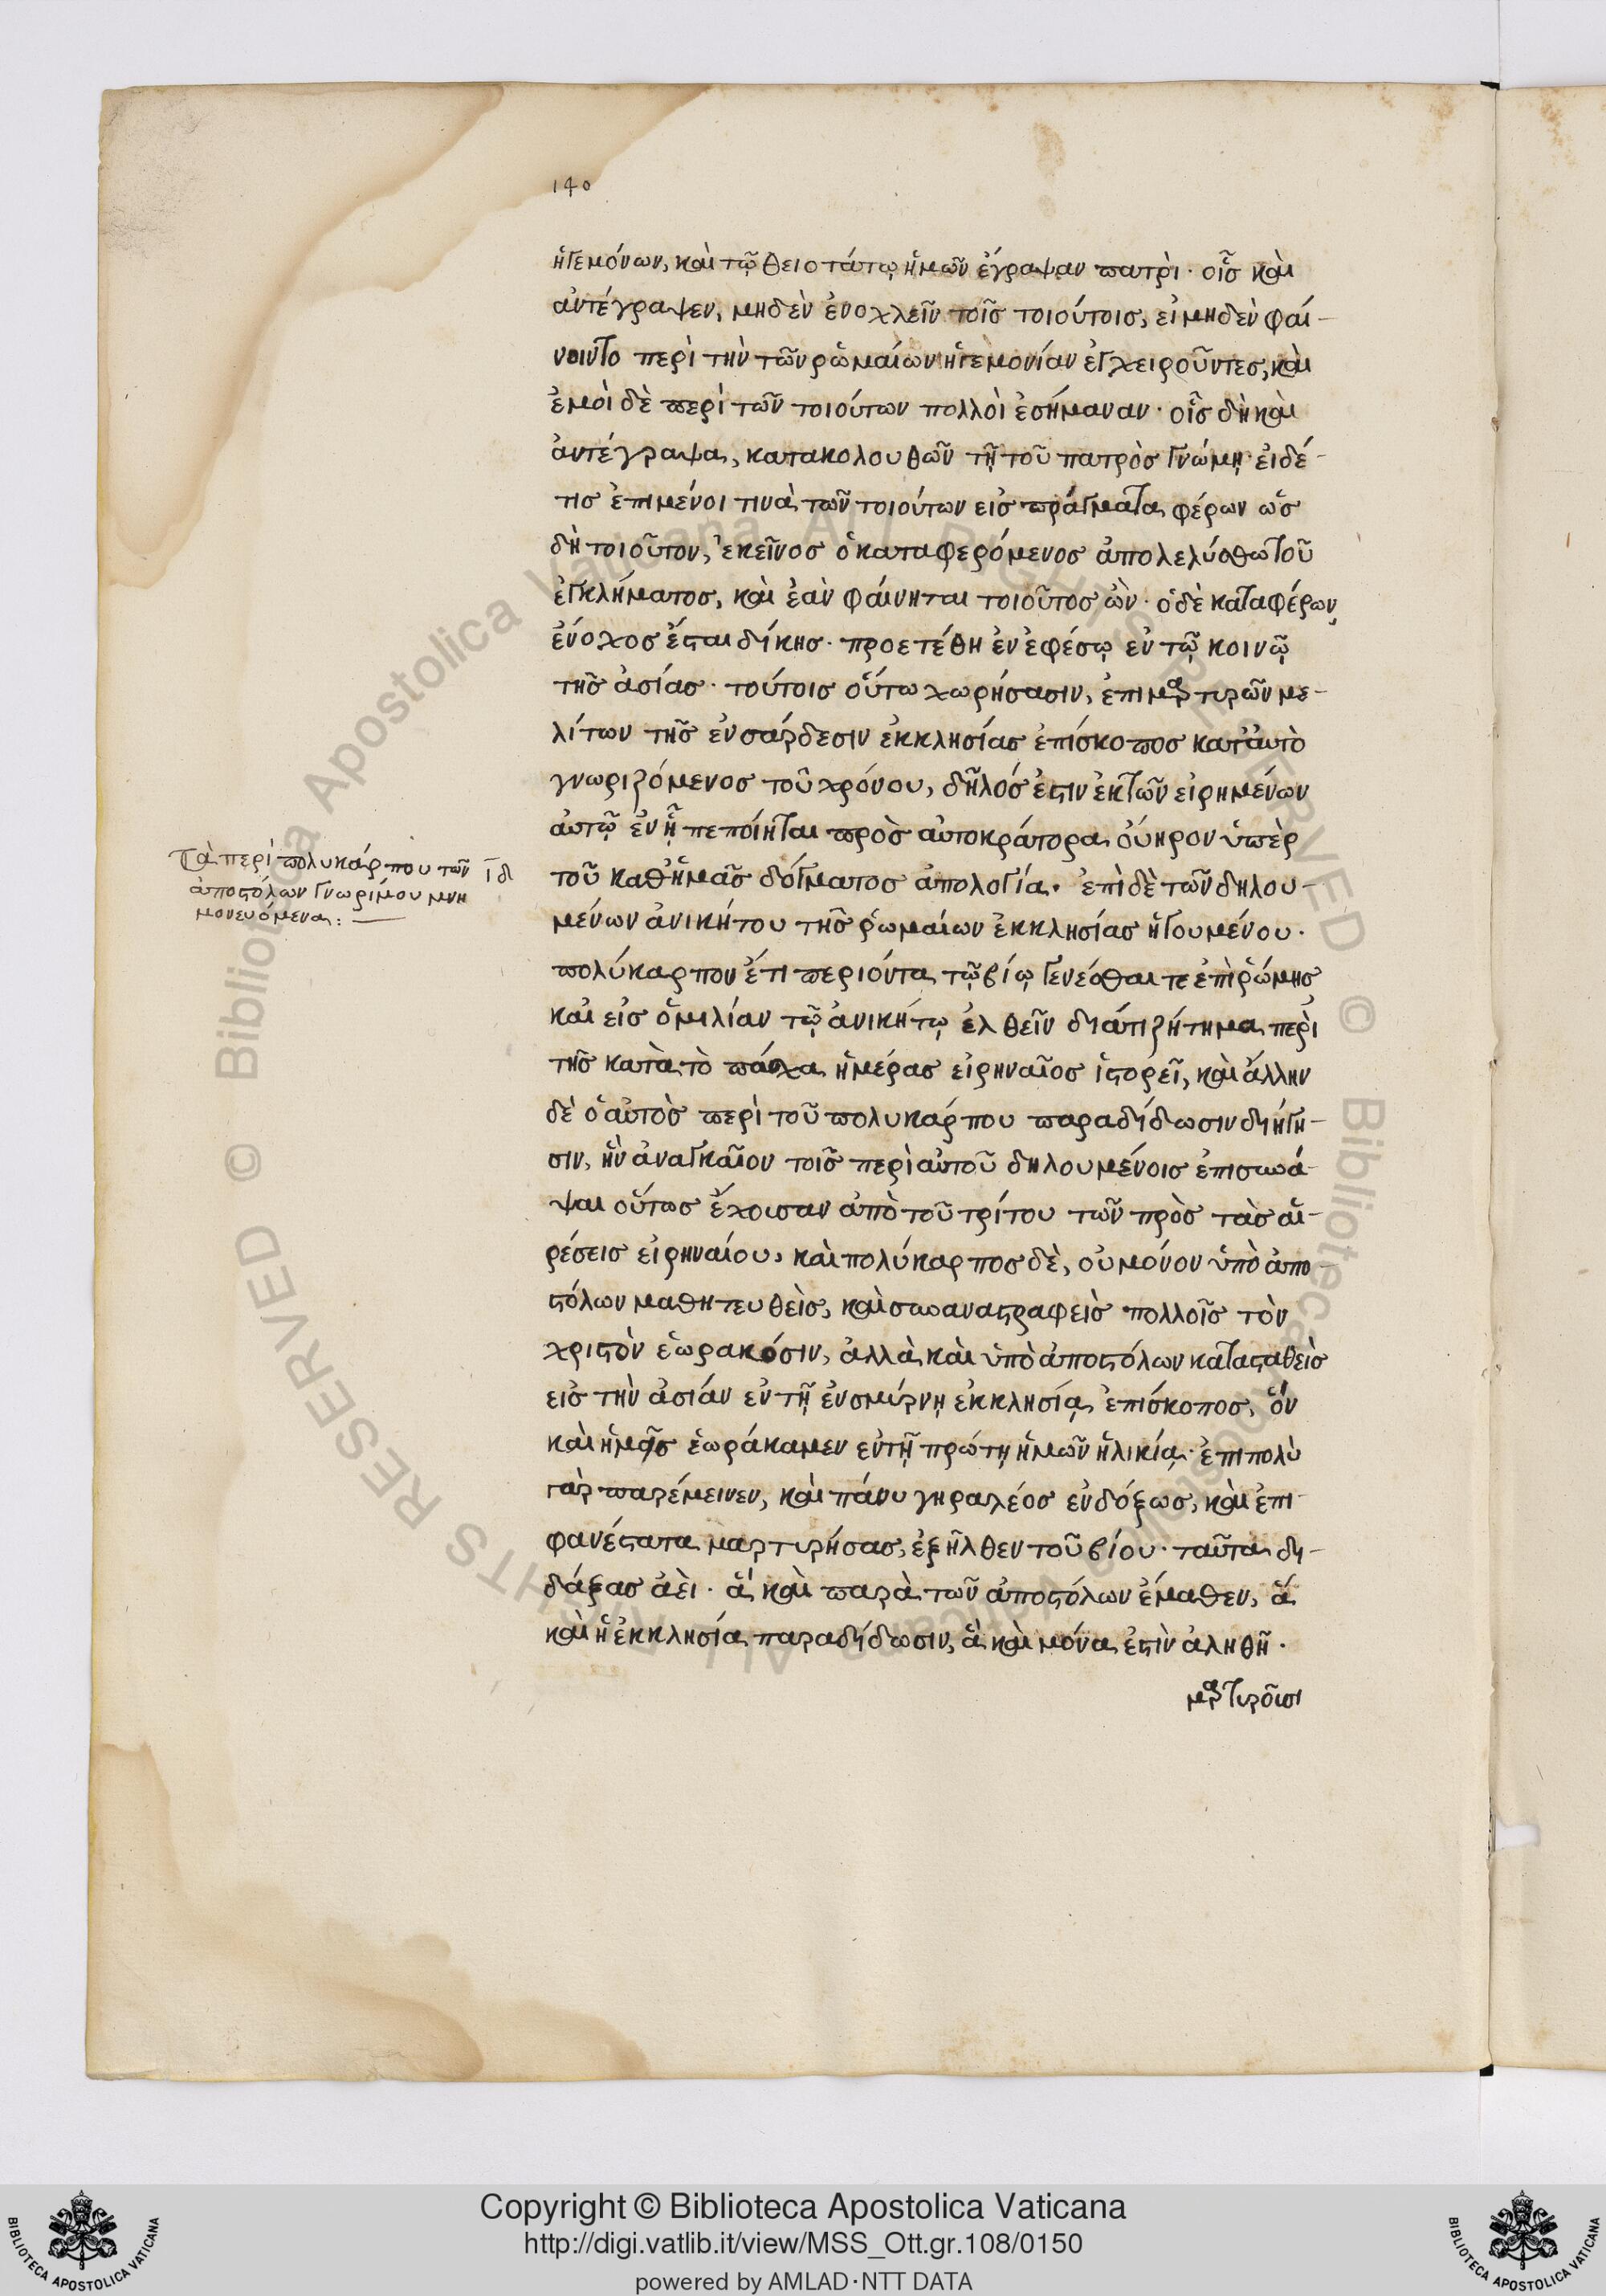 140
ἡγεμόνων, καὶ τῷ θειοτάτῳ ἡμῶν ἔγραψαν πατρὶ · οἷς καὶ
ἀντέγραψεν, μηδὲν ἐνοχλεῖν τοῖς τοιούτοις, εἰ μηδὲν φαί-
νοιντο περὶ τὴν τῶν ῥωμαίων ἡγεμονίαν ἐγχειροῦντες, καὶ
ἐμοὶ δὲ περὶ τῶν τοιούτων πολλοὶ ἐσήμαναν · οἷς δὴ καὶ
ἀντέγραψα, κατακολουθῶν τῇ τοῦ πατρὸς γνώμῃ · εἰ δέ
τις ἐπιμένοι τινὰ τῶν τοιούτων εἰς πράγματα φέρων ὡς
δὴ τοιοῦτον, ἐκεῖνος ὁ καταφερόμενος ἀπολελύσθω τοῦ
ἐγκλήματος, καὶ ἐὰν φαίνηται τοιοῦτος ὢν · ὁ δὲ καταφέρων
ἔνοχος ἔσται δίκης · προετέθη ἐν ἐφέσῳ ἐν τῷ κοινῷ
τῆς ἀσίας · τούτοις οὕτω χωρήσασιν, ἐπιμαρτυρῶν με-
λίτων τῆς ἐν σάρδεσιν ἐκκλησίας ἐπίσκοπος κατ' αὐτὸ
γνωριζόμενος τοῦ χρόνου, δῆλός ἐστιν ἐκ τῶν εἰρημένων
αὐτῷ ἐν ᾗ πεποίηται πρὸς αὐτοκράτορα οὐήρον ὑπὲρ
τοῦ καθ' ἡμᾶς δόγματος ἀπολογία. ἐπὶ δὲ τῶν δηλου-
Τὰ περὶ πολυκάρπου τῶν ιδ
ἀποστόλων γνωρίμου μνη
μονευόμενα : —
μένων ἀνικήτου τῆς ῥωμαίων ἐκκλησίας ἡγουμένου ·
πολύκαρπον ἔτι περιόντα τῷ βίῳ γενέσθαι τε ἐπὶ ῥώμης
καὶ εἰς ὁμιλίαν τῷ ἀνικήτῳ ἐλθεῖν διά τι ζήτημα περὶ
τῆς κατὰ τὸ πάσχα ἡμέρας εἰρηναῖος ἱστορεῖ, καὶ ἄλλην
δὲ ὁ αὐτὸς περὶ τοῦ πολυκάρπου παραδίδωσιν διήγη-
σιν, ἣν ἀναγκαῖον τοῖς περὶ αὐτοῦ δηλουμένοις ἐπισυνά-
ψαι οὕτως ἔχουσαν ἀπὸ τοῦ τρίτου τῶν πρὸς τὰς αἱ-
ρέσεις εἰρηναίου, καὶ πολύκαρπος δὲ, οὐ μόνον ὑπὸ ἀπο-
στόλων μαθητευθεὶς, καὶ συναναστραφεὶς πολλοῖς τὸν
χριστὸν ἑωρακόσιν, ἀλλὰ καὶ ὑπὸ ἀποστόλων κατασταθεὶς
εἰς τὴν ἀσίαν ἐν τῇ ἐν σμύρνῃ ἐκκλησίᾳ ἐπίσκοπος, ὃν
καὶ ἡμεῖς ἑωράκαμεν ἐν τῇ πρώτῃ ἡμῶν ἡλικίᾳ · ἐπιπολὺ
γὰρ παρέμεινεν, καὶ πάνυ γηραλέος ἐνδόξως, καὶ ἐπι-
φανέστατα μαρτυρήσας, ἐξῆλθεν τοῦ βίου · ταῦτα δι-
δάξας ἀεὶ · ἃ καὶ παρὰ τῶν ἀποστόλων ἔμαθεν, ἃ
καὶ ἡ ἐκκλησία παραδίδωσιν, ἃ καὶ μόνα ἐστὶν ἀληθῆ ·
μαρτυροῦσι
© Biblioteca Apostolica Vaticana ALL RIGHTS RESERVED
© Biblioteca Apostolica Vaticana ALL RIGHTS RESERVED
BIBLIOTECA APOSTOLICA VATICANA
Copyright © Biblioteca Apostolica Vaticana
http://digi.vatlib.it/view/MSS_Ott.gr.108/0150
powered by AMLAD·NTT DATA
BIBLIOTECA APOSTOLICA VATICANA